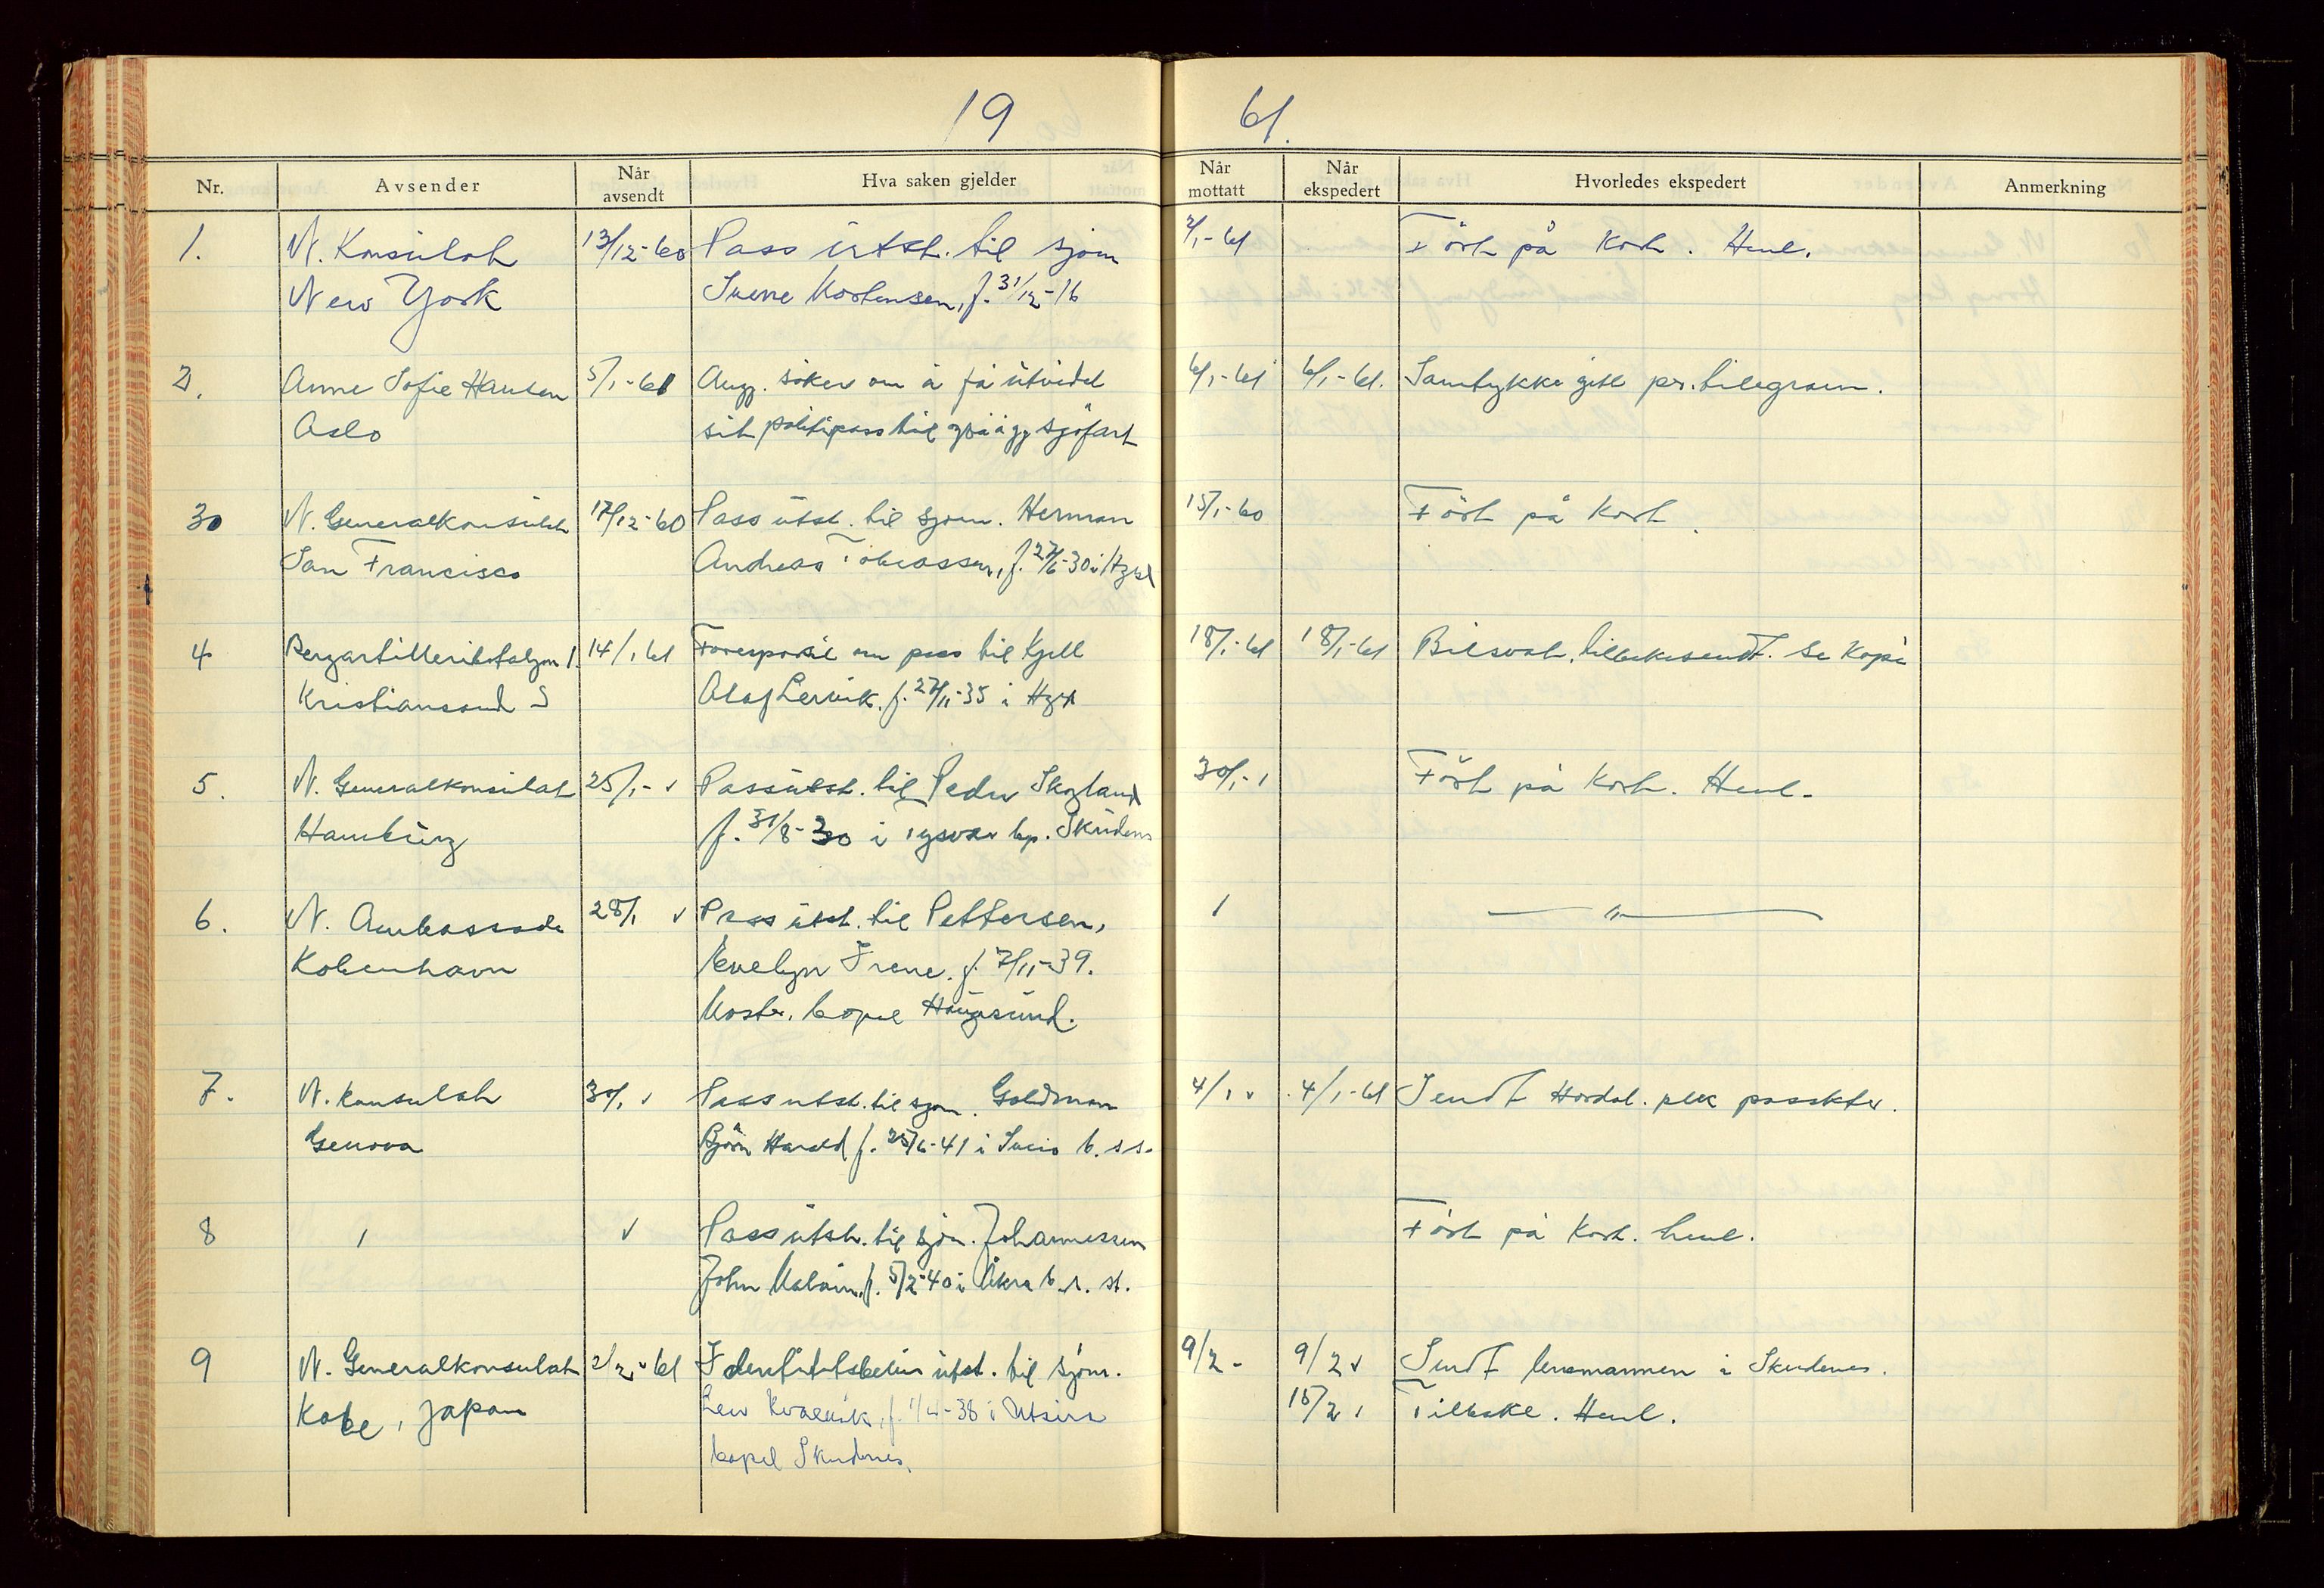 19 61.
Nr. Avsender Når avsendt Hva saken gjelder Når mottatt Når ekspedert Hvorledes ekspedert Anmerkning
1. N. Konsulat 13/12-60 Pass utst. til sjøm 2/1-61 Ført på kort. Henl.
New York Sverre Mortensen, f. 31/12-16
2. Anne Sofie Hansen 5/1-61 Angj. søker om å få utvidet 6/1-61 6/1-61. Samtykke gitt pr. telegram.
Oslo sit politipass til også å gj sjøfart
3. N. Generalkonsulat 17/12-60 Pass utst. til sjøm. Herman 15/1-60 Ført på kort.
San Francisco Andreas Tobiassen, f. 27/6-30 i
4 Bergartilleribataljon 1. 14/1 61 Forespørsel om pass til Kjell 18/1-61 18/1-61 tilbakesendt. Se kopi
Kristiansand S Olaf Lervik. f. 27/11-35 i
5. N. Generalkonsulat 25/1- ✓ Pass utst. til Peder Skogland 30/1- Ført på kort. Henl.
Hamburg f. 31/8-30 i Tysvær bp. Skudenes
6. N. Ambassade 28/1 ✓ Pass utst. til Pettersen, — " —
København Evelyn Irene. f. 7/11-39.
bopel Haugesund.
7. N. Konsulat 30/1 ✓ Pass utst. til sjøm. Goldman 4/1 ✓ 4/1-61 Sendt Hordal. plk passktr.
Genova Bjørn Harald f. 25/6-41 i Sveio b. s s.
8 ✓ Pass utst. til sjøm. Johannessen Ført på kort. henl.
John f. 5/2-40 i Åkra b. s. st.
9 N. Generalkonsulat 2/2 - 61 Identitetsbevis utst. til sjøm. 9/2 - 9/2 ✓ Sendt lensmannen i Skudenes.
Kobe, Japan Kvalvik, f. 1/4-38 i Utsira 15/2 Tilbake. Henl.
bopel Skudenes.